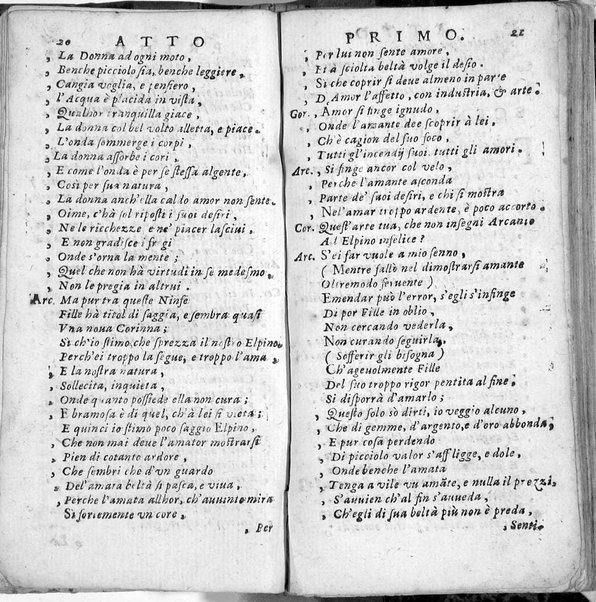 20 ATTO
, La Donna ad ogni moto,
, Benche picciolo sia, benche leggiere,
, Cangia voglia, e pensiero,
, l'Acqua è placida in vista,
, Qualhor tranquilla giace,
, La donna col bel volto alletta, e piace.
, L'onda sommerge i corpi,
La donna assorbe i cori,
, E come l'onda è per se stessa algente,
, Così per sua natura,
, La donna anch'ella caldo amor non sente.
, Oime, c'hà sol riposti i suoi desiri,
, Ne le ricchezze e ne' piacer lasciui,
, E non gradisce i fregi
, Onde s'orna la mente;
, Quel che non hà virtudi in se medesmo,
, Non le pregia in altrui.
Arc. Ma pur tra queste Ninfe
Fille hà titol di saggia, e sembra quasi
Vna noua Corinna;
Si ch'io stimo che sprezza il nostro Elpino
Perch'ei troppo la segue, e troppo l'ama
, E la nostra natura,
, Sollecita, inquieta,
, Onde quanto possiede ella non cura;
, E bramosa è di quel, ch'à lei si vieta;
E quinci io stimo poco saggio Elpino,
, Che non mai deue l'amator mostrarsi
, Pien di cotanto ardore,
, Che sembri che d'vn guardo
, Del'amata beltà si pasca, e viua,
, Perche l'amata allhor, ch'auuinto mira
Sì fortemente vn core,
, Per
PRIMO. 21
, Per lui non sente amore,
, Et à sciolta beltà volge il desio.
, Si che coprir si deue almeno in parte
, D'Amor l'affetto, con industria, & arte.
Cor. , Amor si finge ignudo,
, Onde l'amante dee scoprir à lei,
, Ch'è cagion del suo foco,
, Tutti gl'incendij suoi, tutti gli amori.
Arc. , Si finge ancor col velo,
, Perche l'amante asconda
, Parte de' suoi desiri, e chi si mostra
, Nel'amar troppo ardente, è poco accorto.
Cor. Quest'arte tua, che non insegni Arcanio
Ad Elpino infelice?
Arc. S'ei far vuole a mio senno,
( Mentre fallò nel dimostrarsi amante
Oltremodo feruente )
Emendar può l'error, s'egli s'infinge
Di por Fille in oblio,
Non cercando vederla,
Non curando seguirla,
( Sofferir gli bisogna )
Ch'ageuolmente Fille
Del suo troppo rigor pentita al fine,
Si disporrà d'amarlo;
, Questo solo sò dirti, io veggio alcuno,
, Che di gemme, d'argento, e d'oro abbonda,
, E pur cosa perdendo
, Di picciolo valor s'affligge, e dole,
, Onde benche l'amata
, Tenga a vile vn amāte, e nulla il prezzi,
, S'auuien ch'al fin s'auueda,
, Ch'egli di sua beltà più non è preda,
, Senti-